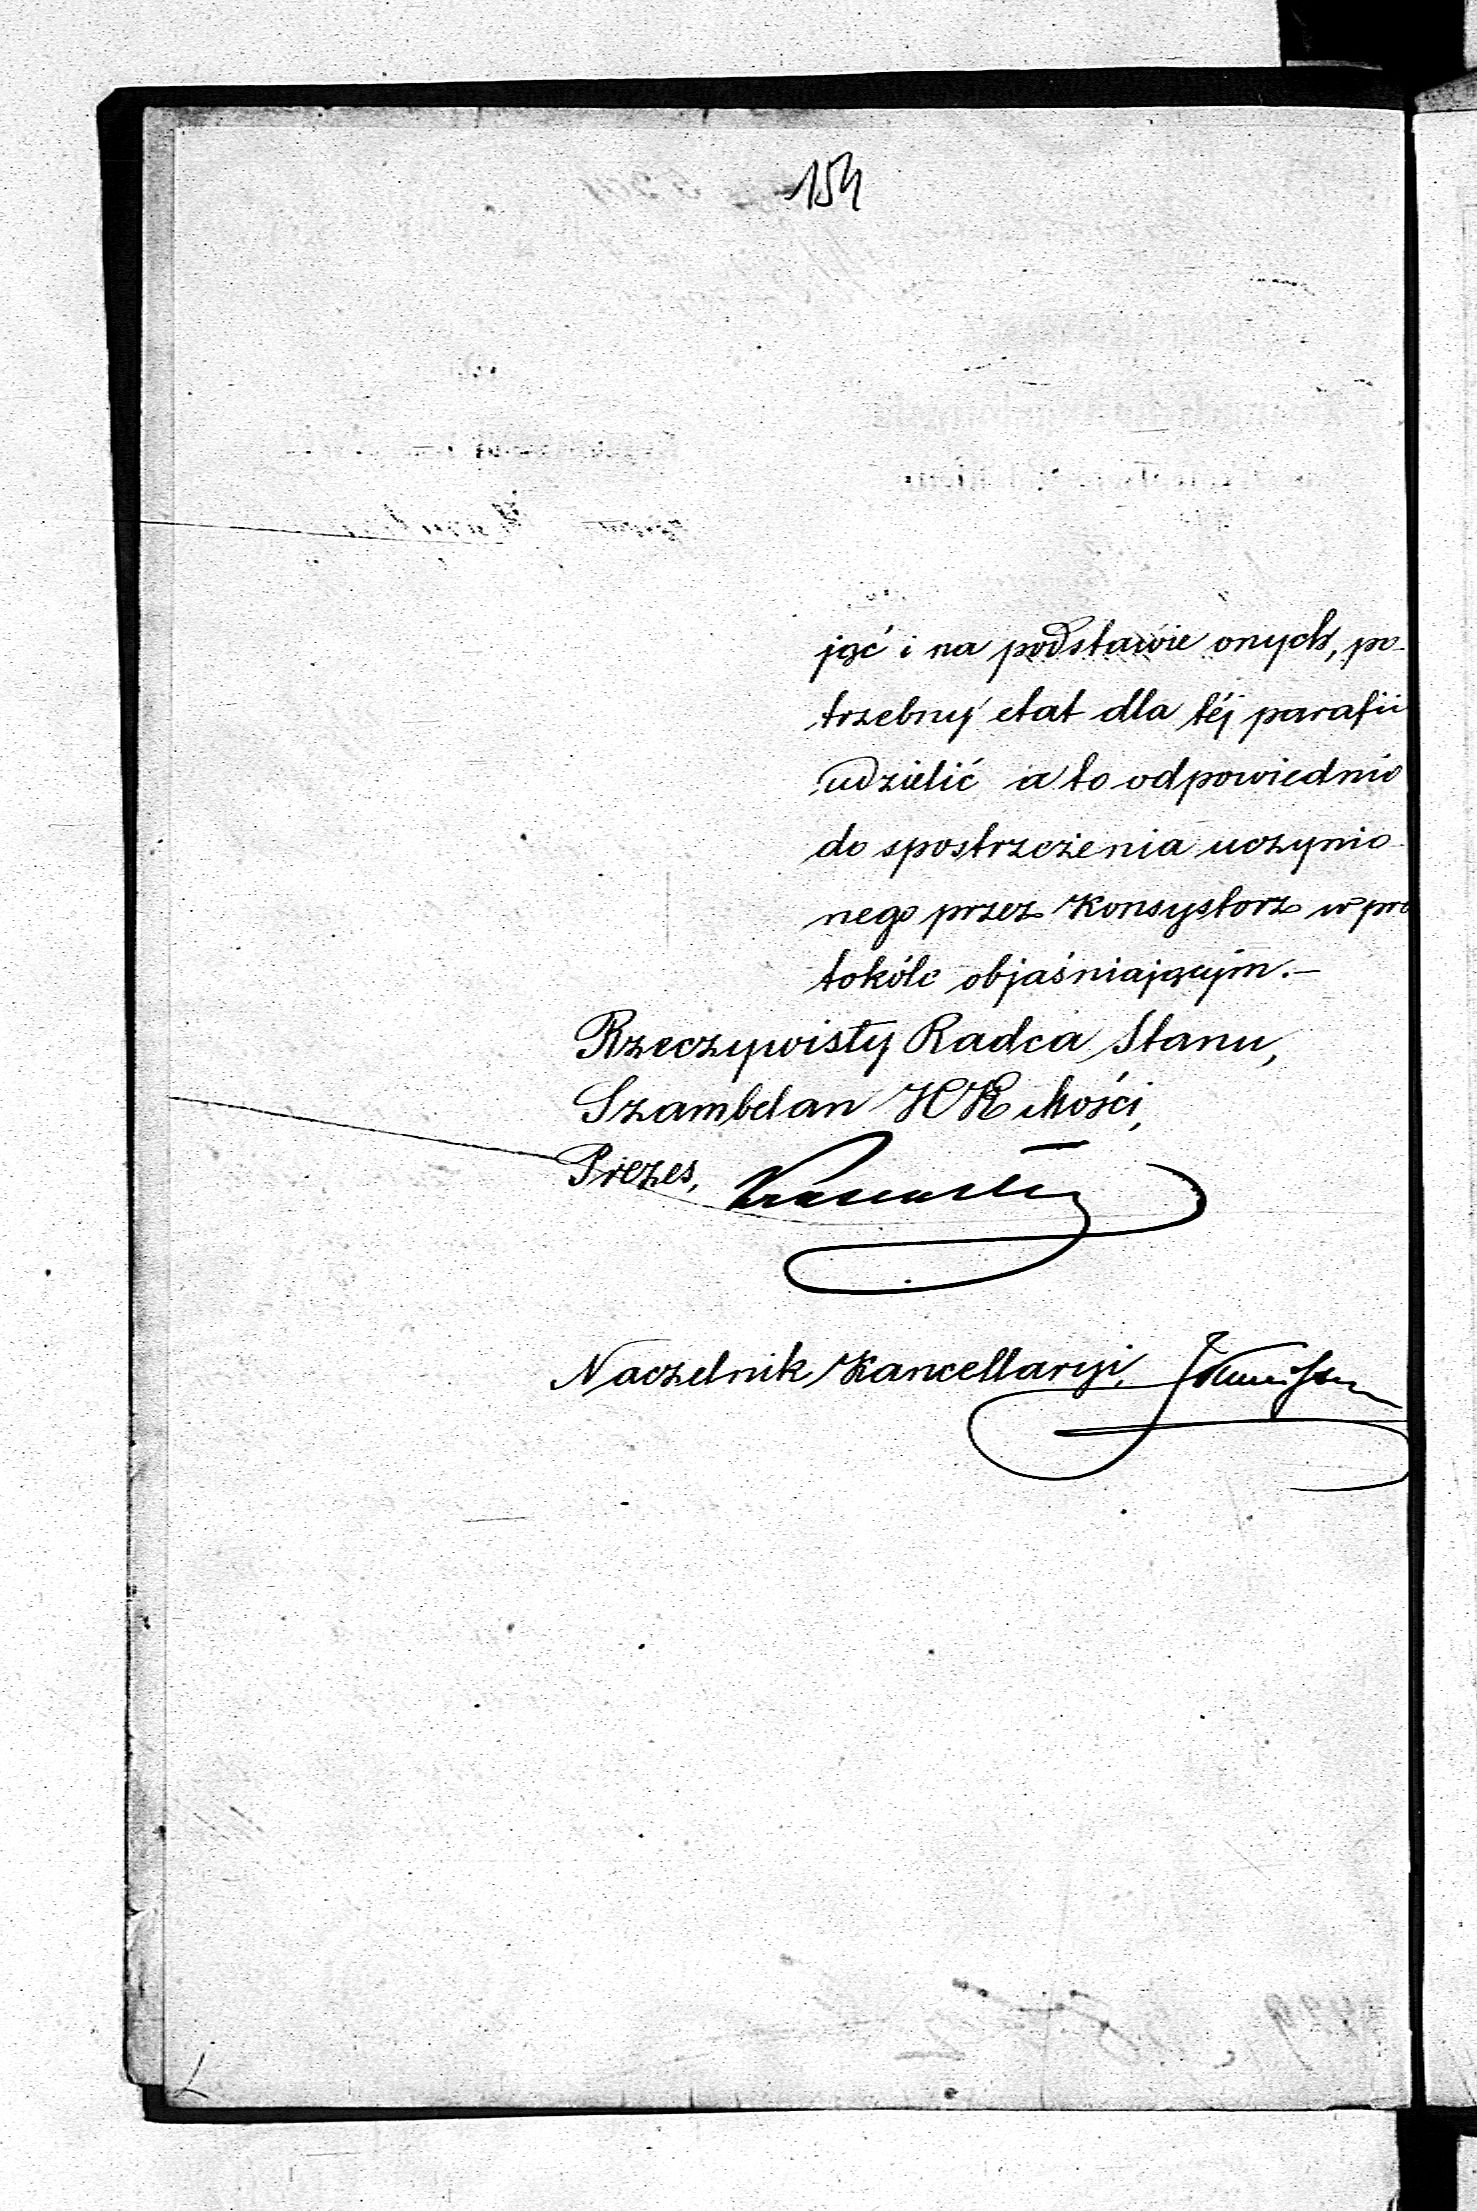 154
jąć i na podstawie onych, po-
trzebny etat dla téj parafii
udzielić a to odpowiednio
do spostrzeżenia uczynio-
nego przez Konsystorz w pro
tokóle objaśniającym.—
Rzeczywisty Radca Stanu,
Szambelan JCK Mości,
Prezes,
Naczelnik Kancellaryi,